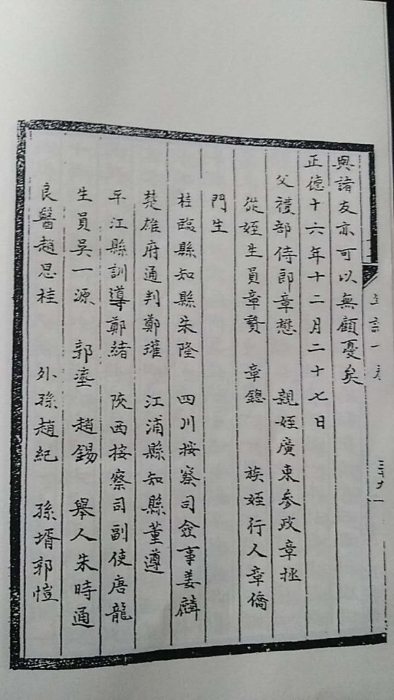 與諸友亦可以無顧憂矣
正德十六年十二月二十七日
父禮部侍郎章懋　親姪廣東參政章拯
從姪生員章贄　章鏓　族姪行人章僑
門生
桂臨縣知縣朱隆　四川按察司僉事姜麟
楚雄府通判鄭瓘　江浦縣知縣董遵
平江縣訓導鄭緒　陝西按察司副使唐龍
生員吳一源　郭臺　趙錫　舉人朱時通
良醫趙思桂　外孫趙紀　孫壻郭愷